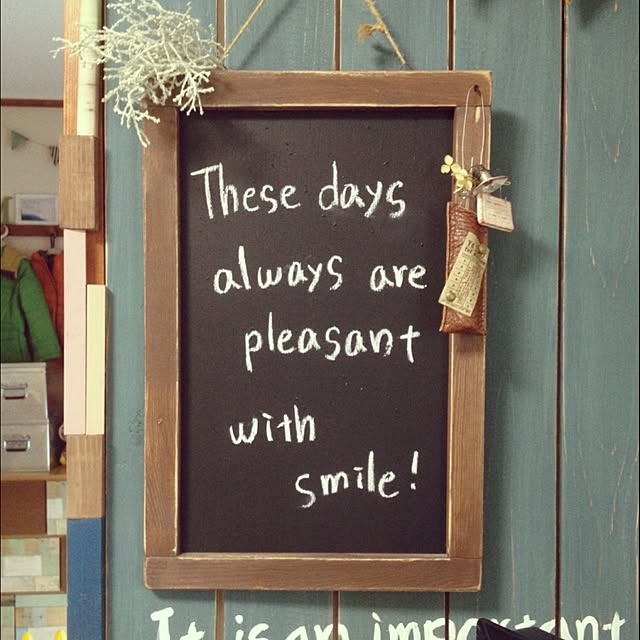 These days
always are
pleasant
with
smile!
It is an important